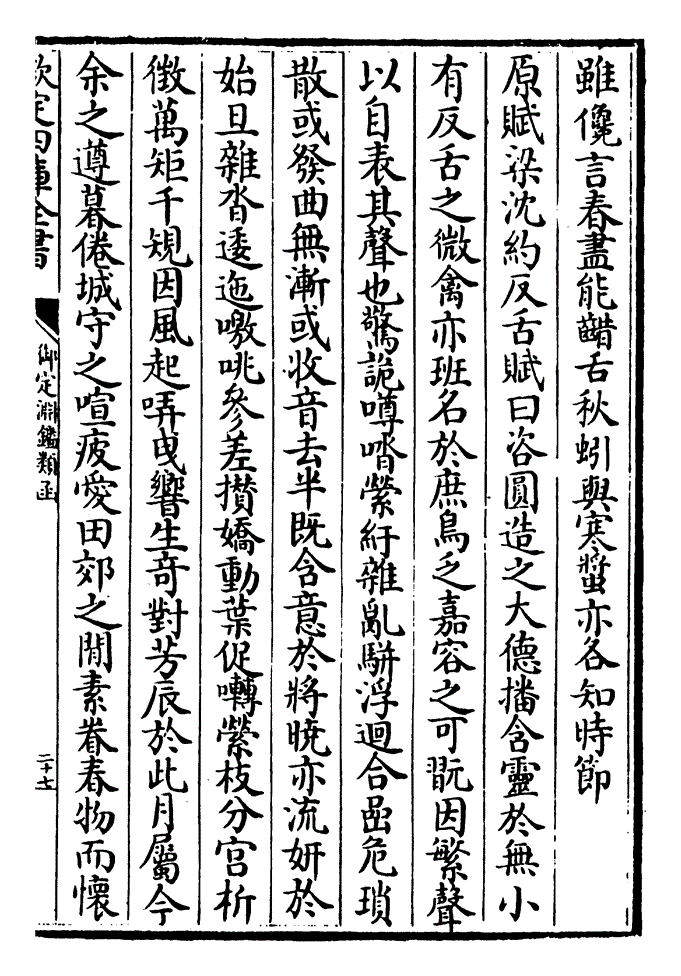 雖儳言春盡能齰舌秋蚓與寒螿亦各知時節
原賦梁沈約反舌賦曰咨圓造之大德播含靈於無小
有反舌之微禽亦班名於庶鳥乏嘉容之可翫因繁聲
以自表其聲也驚詭噂㗳縈紆雜亂駢浮迴合嵒危瑣
散或發曲無漸或收音去半既含意於將曉亦流妍於
始旦雜沓逶迤噭咷參差攅嬌動葉促囀縈枝分宫析
徴萬矩千規因風起哢曵響生奇對芳辰於此月屬今
余之遵暮倦城守之喧疲愛田郊之閒素眷春物而懷
欽定四庫全書
御定淵鑑類函
二十七